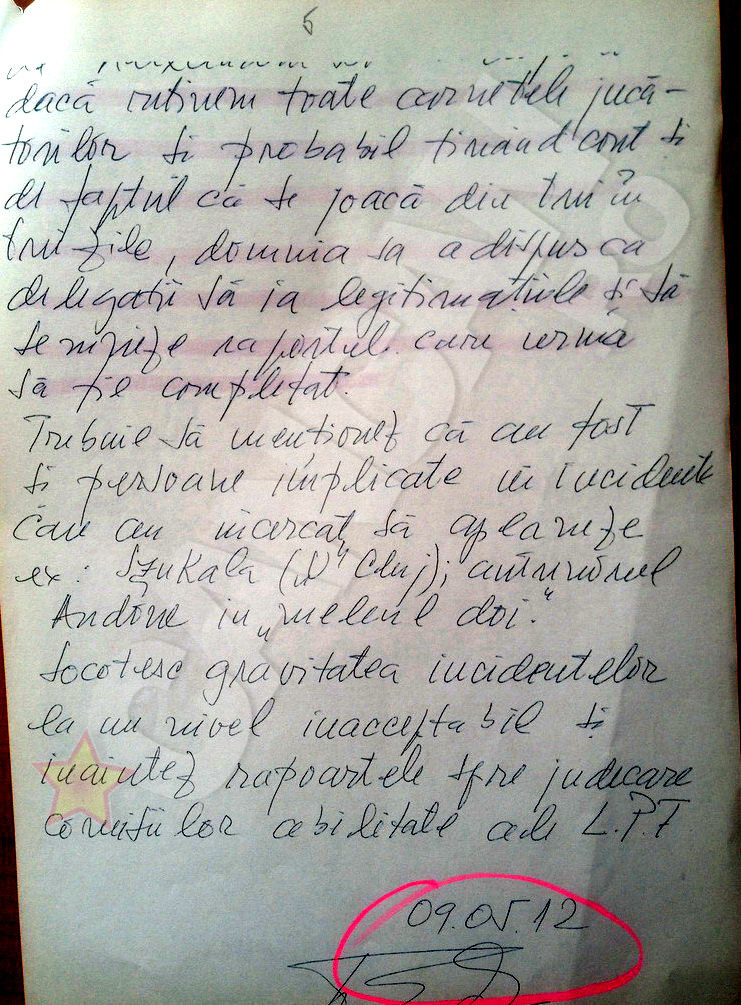 6
dacă reținem toate carnetele jucă-
torilor și probabil ținând cont și
de faptul că se joacă din trei în
trei zile, domnia sa a dispus ca
delegații să ia legitimațiile și să
semneze raportul care urma
să fie completat.
Trebuie să menționez că au fost
și persoane implicate în incidente
care au încercat să aplaneze
ex: Szukala („U” Cluj); antrenorul
Andone în „meleul doi.”
Socotesc gravitatea incidentelor
la un nivel inacceptabil și
inaintez rapoartele spre judecare
comisiilor abilitate ale L.P.F
09.05.12
CANCAN.RO